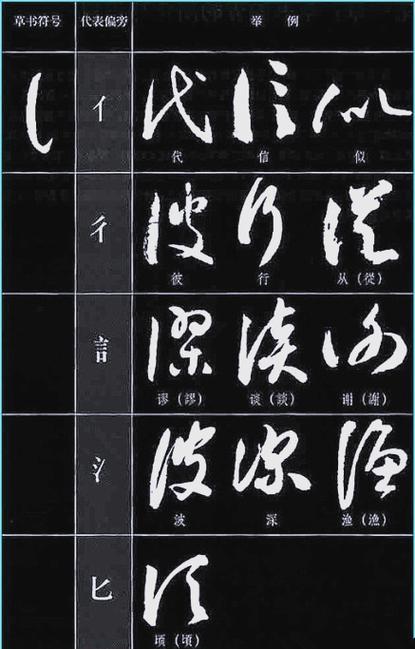 草书符号 代表偏旁 举例
亻 代 信 似
彳 彼 行 从（從）
言 谬（謬） 谈（談） 谢（謝）
氵 波 深 渔（漁）
匕 顷（頃）